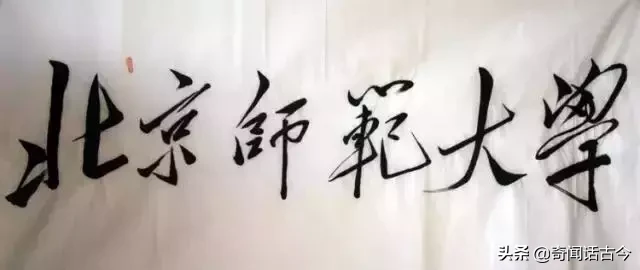 北京師範大學
头条 @奇闻话古今